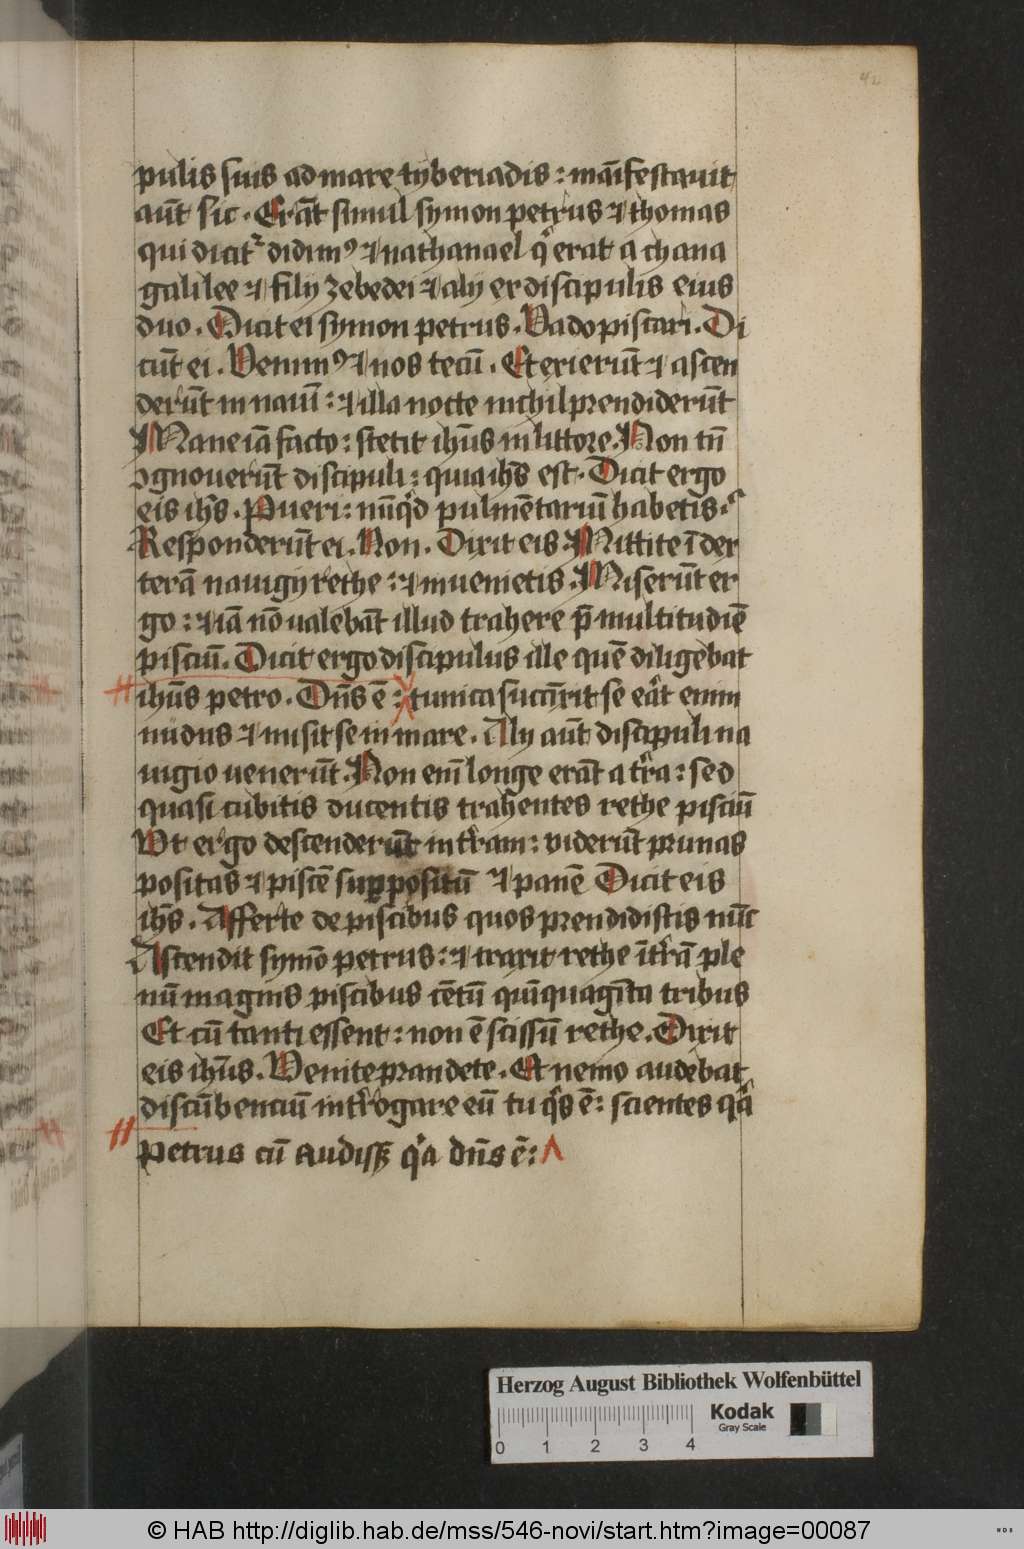 42
pulis suis ad mare tyberiadis : māifestauit
aūt sic . Erāt simul symon petrus ⁊ thomas
qui dicit᷑ didimꝰ ⁊ nathanael qͥ erat a chana
galilee ⁊ filij zebedei ⁊ alij ex discipulis eius
duo . Dicit ei symon petrus . Vado piscari . Di
cūt ei . Venimꝰ ⁊ nos tecū . Et exierūt ⁊ ascen
derūt in nauī : ⁊ illa nocte nichil prendiderūt
Mane iā facto : stetit ih̄us in littore . Non tn̄
ꝯgnouerūt discipuli : quia ih̄s est . Dicit ergo
eis ih̄s . Pueri : nūqͥd pulmētariū habetis .
Responderūt ei . Non . Dixit eis . Mittite ī dex
terā nauigij rethe : ⁊ inuenietis . Miserūt er
go : ⁊ iā nō ualebāt illud trahere p̄ multitudīe
pisciū . Dicit ergo discipulus ille quē diligebat
ih̄us petro . Dn̄s ē : tunica succīxit se eāt enim
nudus ⁊ misit se in mare . Alij aūt discipuli na
uigio uenerūt . Non enī longe erāt a tr̄a : sed
quasi cubitis ducentis trahentes rethe pisciū
Vt ergo descenderūt in tr̄am : viderūt prunas
positas ⁊ piscē suppositū ⁊ panē Dicit eis
ih̄s . Afferte de piscibus quos prendidistis nūc
Ascendit symō petrus : ⁊ traxit rethe ī tr̄ā ple
nū magnis piscibus cētū quīquagīta tribus
Et cū tanti essent : non ē scissū rethe . Dixit
eis ih̄us . Venite prandete . Et nemo audebat
discūbenciū intr̄ogare eū tu qͥs ē : scientes qͥa
Petrus cū audiss; qͥa dn̄s ē : ∧
Herzog August Bibliothek Wolfenbüttel
0 1 2 3 4
Kodak
Gray Scale
© HAB http://diglib.hab.de/mss/546-novi/start.htm?image=00087